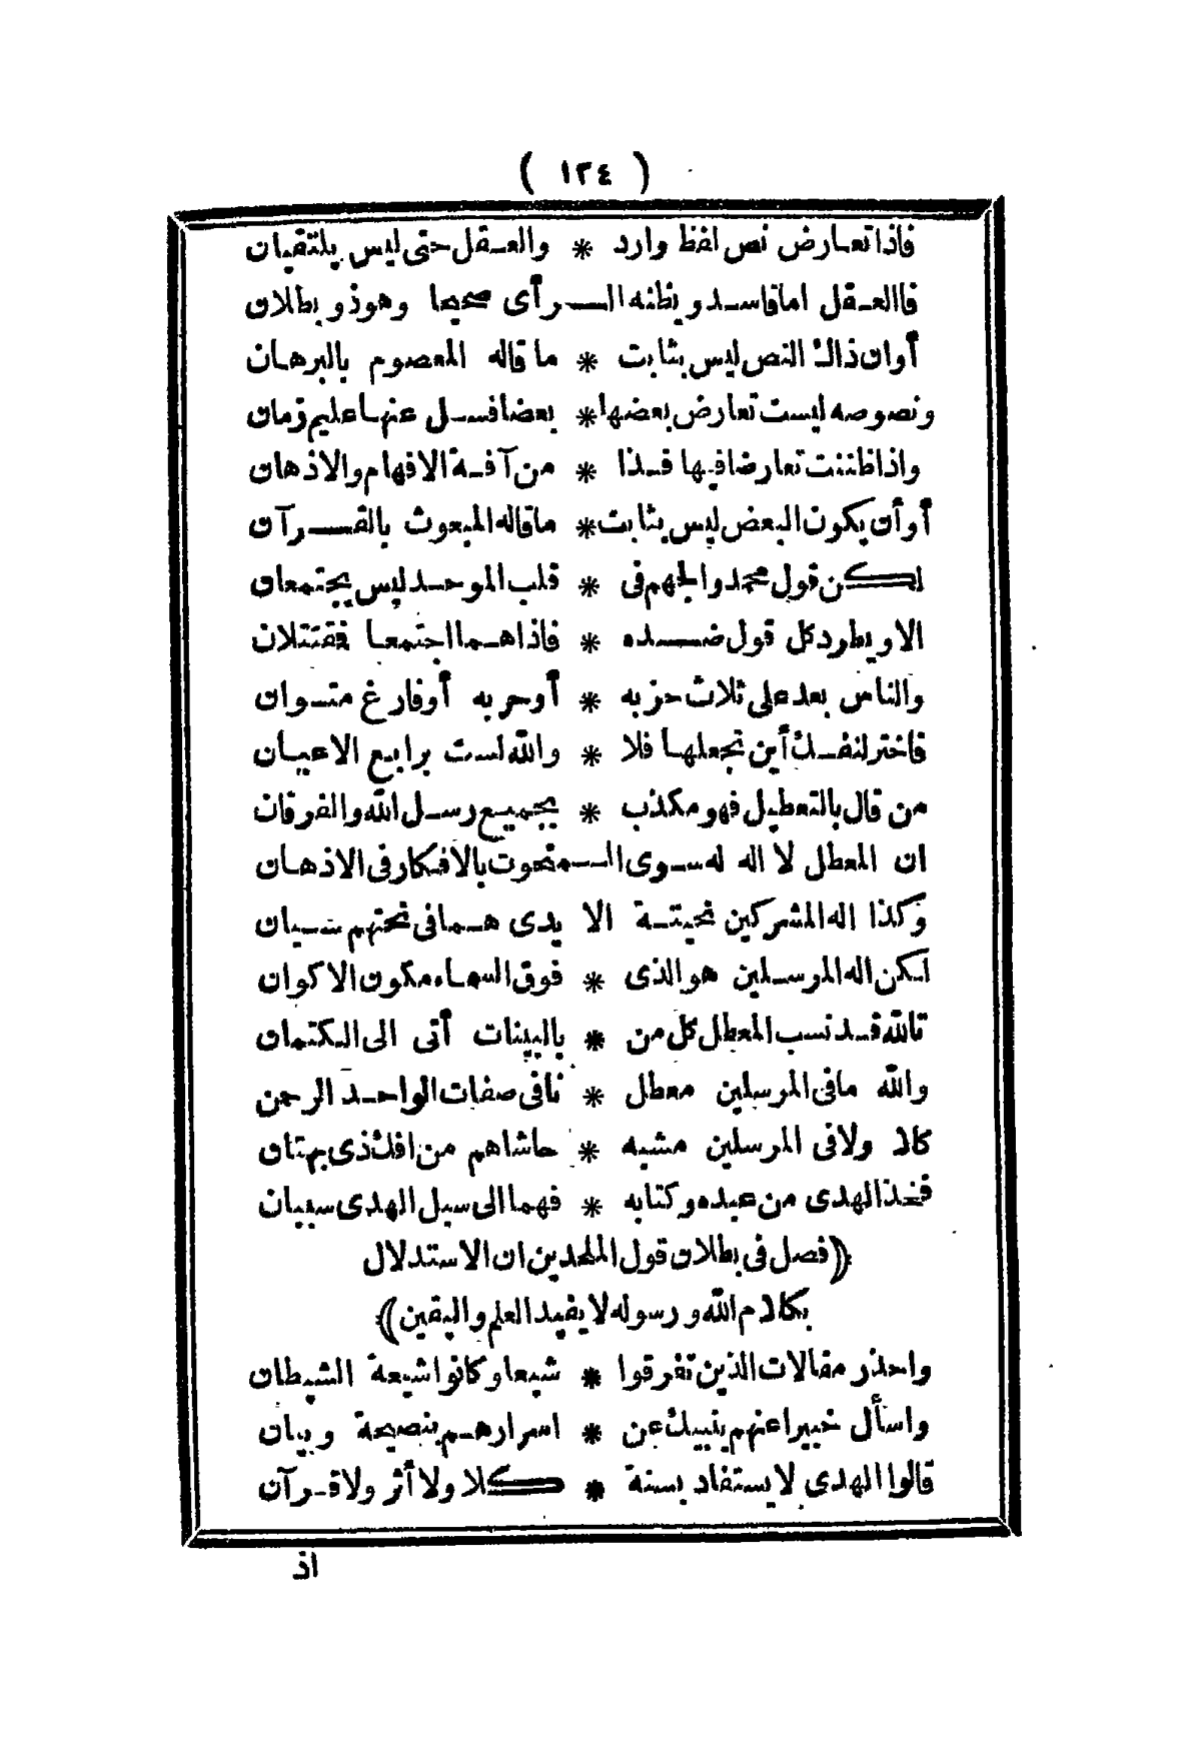 ( ١٣٤ )
فاذا تعارض نص لفظ وارد * والعقل حتى ليس يلتقيان
فالعقل اما فاسد ويظنه الرأى صحيحا وهو ذو بطلان
أو ان ذاك النص ليس بثابت * ما قاله المعصوم بالبرهان
ونصوصه ليست تعارض بعضها * بعضا فسل عنها عليم زمان
واذا ظننت تعارضا فيها فذا * من آفة الافهام والاذهان
أو أن يكون البعض ليس بثابت * ما قاله المبعوث بالقرآن
لكن قول محمد والجهم فى * قلب الموحد ليس يجتمعان
الا ويطرد كل قول ضده * فاذا هما اجتمعا فقتتلان
والناس بعد على ثلاث حزبه * أو حربه أو فارغ متوان
فاختر لنفسك أين تجعلها فلا * والله لست برابع الاعيان
من قال بالتعطيل فهو مكذب * بجميع رسل الله والفرقان
ان المعطل لا اله له سوى المنحوت بالافكار فى الاذهان
وكذا اله المشركين نحيتة الا يدى هما فى نحتهم سيان
لكن اله المرسلين هو الذى * فوق السماء مكون الاكوان
تالله قد نسب المعطل كل من * بالبينات أتى الى الكتمان
والله ما فى المرسلين معطل * نافى صفات الواحد الرحمن
كلا ولا فى المرسلين مشبه * حاشاهم من افك ذى بهتان
فخذ الهدى من عبده وكتابه * فهما الى سبل الهدى سببان
﴿فصل فى بطلان قول الملحدين ان الاستدلال
بكلام الله ورسوله لا يفيد العلم واليقين﴾
واحذر مقالات الذين تفرقوا * شيعا وكانوا شيعة الشيطان
واسأل خبيرا عنهم ينبيك عن * اسرارهم بنصيحة وبيان
قالوا الهدى لا يستفاد بسنة * كلا ولا أثر ولا قرآن
اذ